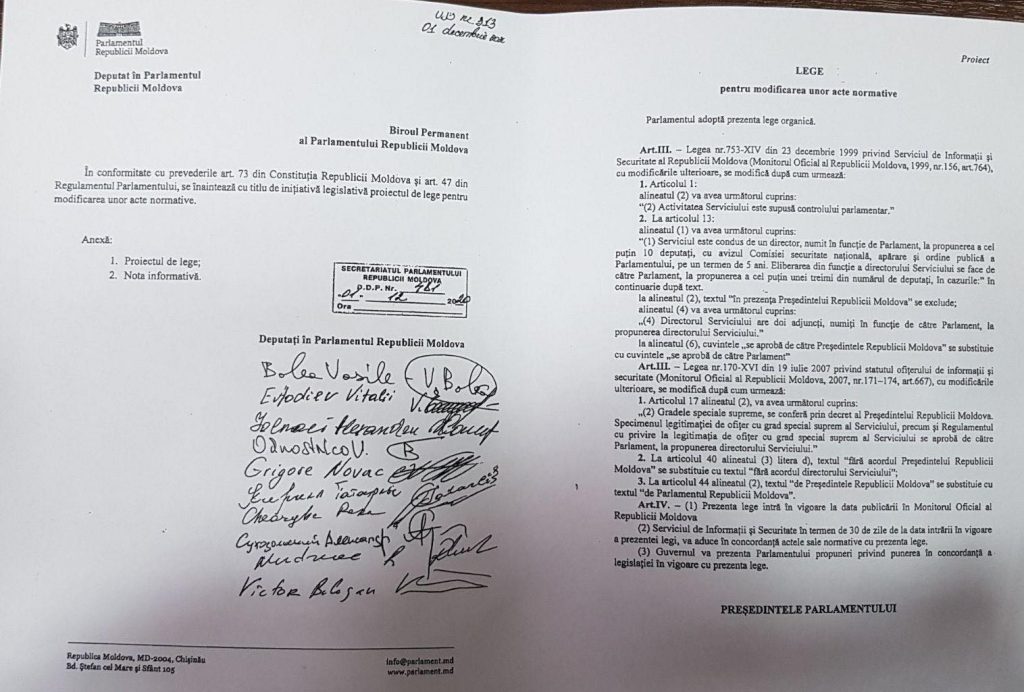 Parlamentul
Republicii Moldova
nr. 313
01 decembrie
Deputat în Parlamentul
Republicii Moldova
Biroul Permanent
al Parlamentului Republicii Moldova
În conformitate cu prevederile art. 73 din Constituția Republicii Moldova și art. 47 din
Regulamentul Parlamentului, se înaintează cu titlu de inițiativă legislativă proiectul de lege pentru
modificarea unor acte normative.
Anexă:
1. Proiectul de lege;
2. Nota informativă.
SECRETARIATUL PARLAMENTULUI
REPUBLICII MOLDOVA
D.D.P. Nr.
"01" 12 2020
Ora
Deputați în Parlamentul Republicii Moldova
Bolea Vasile V. Bolea
Evtodiev Vitalii
Odnostalco V.
Grigore Novac
Gheorghe
Victor Bologan
Republica Moldova, MD-2004, Chișinău
Bd. Ștefan cel Mare și Sfânt 105
info@parlament.md
www.parlament.md
Proiect
LEGE
pentru modificarea unor acte normative
Parlamentul adoptă prezenta lege organică.
Art.III. – Legea nr.753-XIV din 23 decembrie 1999 privind Serviciul de Informații și
Securitate al Republicii Moldova (Monitorul Oficial al Republicii Moldova, 1999, nr.156, art.764),
cu modificările ulterioare, se modifică după cum urmează:
1. Articolul 1:
alineatul (2) va avea următorul cuprins:
“(2) Activitatea Serviciului este supusă controlului parlamentar.”
2. La articolul 13:
alineatul (1) va avea următorul cuprins:
“(1) Serviciul este condus de un director, numit în funcție de Parlament, la propunerea a cel
puțin 10 deputați, cu avizul Comisiei securitate națională, apărare și ordine publică a
Parlamentului, pe un termen de 5 ani. Eliberarea din funcție a directorului Serviciului se face de
către Parlament, la propunerea a cel puțin unei treimi din numărul de deputați, în cazurile:” în
continuarie după text.
la alineatul (2), textul "în prezența Președintelui Republicii Moldova" se exclude;
alineatul (4) va avea următorul cuprins:
„(4) Directorul Serviciului are doi adjuncți, numiți în funcție de către Parlament, la
propunerea directorului Serviciului.”
la alineatul (6), cuvintele „se aprobă de către Președintele Republicii Moldova” se substituie
cu cuvintele „se aprobă de către Parlament”
Art.III. – Legea nr.170-XVI din 19 iulie 2007 privind statutul ofițerului de informații și
securitate (Monitorul Oficial al Republicii Moldova, 2007, nr.171–174, art.667), cu modificările
ulterioare, se modifică după cum urmează:
1. Articolul 17 alineatul (2), va avea următorul cuprins:
„(2) Gradele speciale supreme, se conferă prin decret al Președintelui Republicii Moldova.
Specimenul legitimației de ofițer cu grad special suprem al Serviciului, precum și Regulamentul
cu privire la legitimația de ofițer cu grad special suprem al Serviciului se aprobă de către
Parlament, la propunerea directorului Serviciului.”
2. La articolul 40 alineatul (3) litera d), textul “fără acordul Președintelui Republicii
Moldova” se substituie cu textul “fără acordul directorului Serviciului”;
3. La articolul 44 alineatul (2), textul “de Președintele Republicii Moldova” se substituie cu
textul “de Parlamentul Republicii Moldova”.
Art.IV. – (1) Prezenta lege intră în vigoare la data publicării în Monitorul Oficial al
Republicii Moldova
(2) Serviciul de Informații și Securitate în termen de 30 de zile de la data intrării în vigoare
a prezentei legi, va aduce în concordanță actele sale normative cu prezenta lege.
(3) Guvernul va prezenta Parlamentului propuneri privind punerea în concordanță a
legislației în vigoare cu prezenta lege.
PREȘEDINTELE PARLAMENTULUI